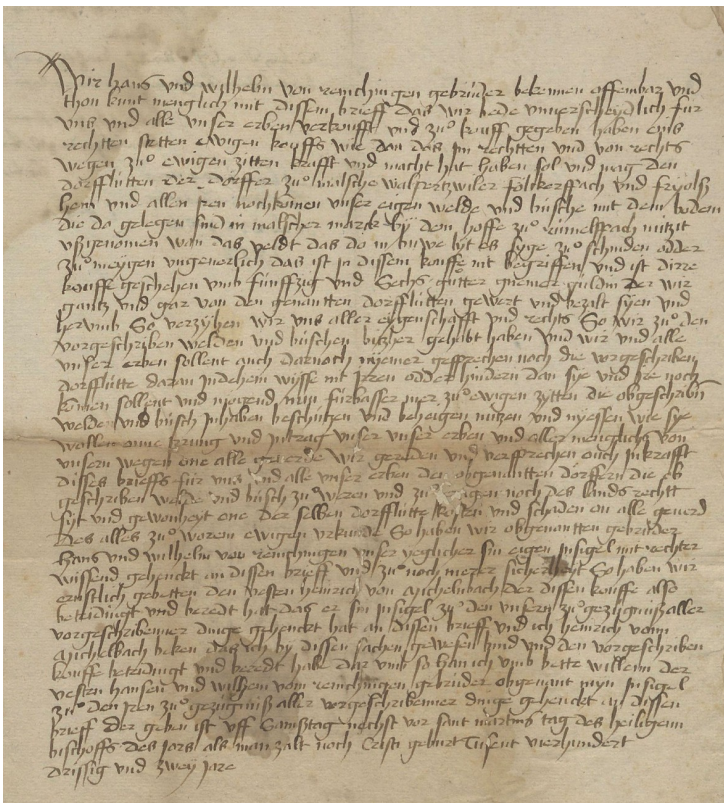 Wir hans vnd wilhelm von remchingen gebrúder bekennen offembar vnd
thon kunt menglich mit dissem brieff das wir bede vnuerscheydlich fúr
vns vnd alle vnser erben verkoufft vnd zuo kouff gegeben haben eyns
rechtten stetten ewigen kouffs wie dan das jm rechtten vnd von rechts
wegen zuo ewigen zitten krafft vnd macht hat haben sol vnd mag den
dorfflútten der dorffer zuo malsche walpertzwiler fólckerspach vnd fryolsz
heim vnd allen jren nochkomen vnser eigen welde vnd búsche mit dem bodem
die do gelegen sind in malscher marck by dem hoffe zuo rimelspach nútzit
vszgenomen wan das veldt das do in buwe lyt es syge zuo schniden odder
zuo meygen vngeuerlich das ist in dissem kouffe nit begriffen vnd ist dirre
kouffe geschehen vmb fúnffzig vnd Sechs gútter genemer guldin der wir
gantz vnd gar von den genantten dorfflútten gewert vnd bezalt syen vnd
hervmb So verzyhen wir vns aller eygenschafft vnd rechts So wir zuo den
vorgeschriben welden vnd búschen bitzher gehebt haben vnd wir vnd alle
vnser erben sollent ouch darnoch nyemer gesprechen noch die vorgeschriben
dorfflútte daran jndehein wysse nit jrren odder hindern dan sye vnd jre noch
komen sollent vnd mogend nun fúrbasser mer zuo ewigen zytten die obgeschribn
welde vnd búsch jnhaben beschútzen vnd beheigen nútzen vnd nyessen wie sye
wollen onne jrrung vnd jntrag vnser vnser erben vnd aller menglichs von
vnsern wegen one alle geuerde wir gereden vnd versprechen ouch jn krafft
disses brieffs fúr vns vnd alle vnser erben den obgenantten dorffern die ob
geschriben welde vnd búsch zuo weren vnd zuo noch des lands rechtt
sytt vnd gewonheyt one der selben dorfflútte kosten vnd schaden on alle geuerd
des alles zuo worem ewigen vrkunde So haben wir obgenantten gebrúder
hans vnd wilhelm von remchingen vnser yeglicher sin eigen jnsigel mit rechter
wissend gehenckt an dissen brieff vnd zuo noch merer sicherheyt So haben wir
ernstlich gebetten den vesten heinrich von michelnbach der dissen kouffe also
beteidingt vnd beredt hatt das er sin jnsigel zuo den vnsern zuo gezúgnúsz aller
vorgeschribenner dinge gehenckt hat an dissen brieff vnd ich heinrich vonn
michelbach beken das ich by dissen sachen gewesen bind vnd den vorgeschriben
kouffe beteidingt vnd beredt habe dar vmb so han ich vmb bette willenn der
vesten hansen vnd wilhem vonn remchingen gebrúder obgenant myn jnsigel
zuo den jren zuo gezúgnisz aller vorgeschribenner dinge gehenckt an dissen
brieff der geben ist vff Samsztag nechst vor sant martins tag des heiligenn
bischoffs des jors als man zalt noch Cristi geburt Tusent vierhundert
drissig vnd zwey jare